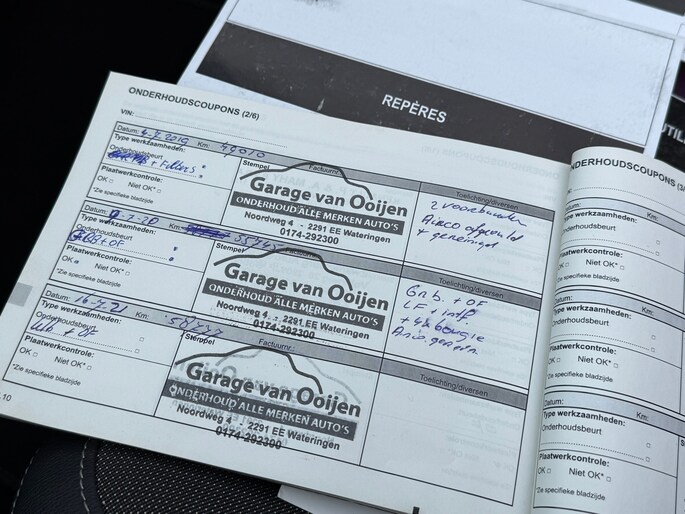 REPÈRES
UTIL
ONDERHOUDSCOUPONS (2/6)
VIN:
Datum: 4-7-2019 Km: 49010
Type werkzaamheden:
Onderhoudsbeurt
+ Filters
Plaatwerkcontrole:
OK Niet OK*
*Zie specifieke bladzijde
Stempel Factuurnr.:
Garage van Ooijen
ONDERHOUD ALLE MERKEN AUTO'S
Noordweg 4 - 2291 EE Wateringen
0174-292300
Toelichting/diversen
2 voorbanden
Airco afgevuld
+ gereinigd
Datum: -7-20 Km:
Type werkzaamheden:
Onderhoudsbeurt
GB + OF
Plaatwerkcontrole:
OK Niet OK*
*Zie specifieke bladzijde
Stempel
Garage van Ooijen
ONDERHOUD ALLE MERKEN AUTO'S
Noordweg 4 - 2291 EE Wateringen
0174-292300
Toelichting/diversen
Gr b. + OF
LF + intF
+ 4x bougie
Datum: 16-7-21 Km:
Type werkzaamheden:
Onderhoudsbeurt
+ OF
Plaatwerkcontrole:
OK Niet OK*
*Zie specifieke bladzijde
Stempel Factuurnr.:
Garage van Ooijen
ONDERHOUD ALLE MERKEN AUTO'S
Noordweg 4 - 2291 EE Wateringen
0174-292300
Toelichting/diversen
10
ONDERHOUDSCOUPONS (3/
VIN:
Datum: Km:
Type werkzaamheden:
Onderhoudsbeurt
Plaatwerkcontrole:
OK Niet OK*
*Zie specifieke bladzijde
Datum: Km:
Type werkzaamheden:
Onderhoudsbeurt
Plaatwerkcontrole:
OK Niet OK*
*Zie specifieke bladzijde
Datum: Km:
Type werkzaamheden:
Onderhoudsbeurt
Plaatwerkcontrole:
OK Niet OK*
*Zie specifieke bladzijde